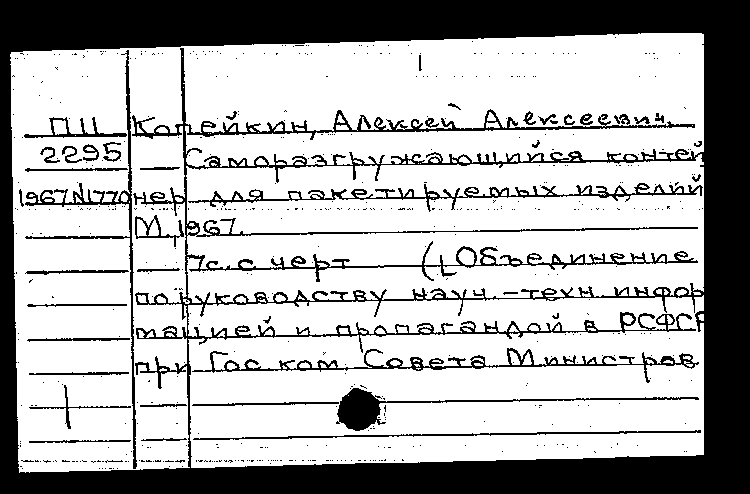 ПШ Копейкин, Алексей Алексеевич.
2295 Саморазгружающийся контей
1967N1770 нер для пакетируемых изделий
М, 1967.
7с. с черт (Объединение
по руководству науч.-техн. инфор
мацией и пропагандой в РСФСР
при Гос ком. Совета Министров